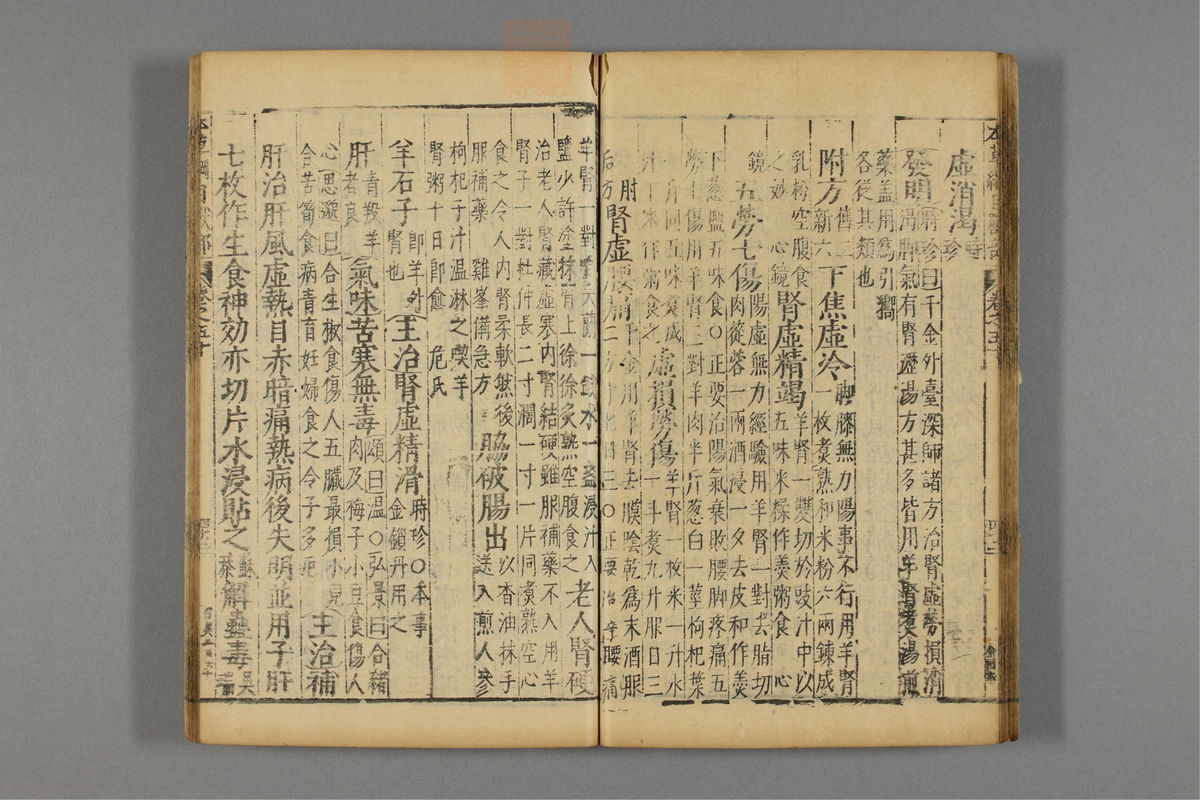 虛消渴時珍
發明時珍曰千金外臺深師諸方治腎虛勞損消
渴脚氣有腎瀝湯方甚多皆用羊腎煮湯煎
藥蓋用為引嚮
各從其類也
附方舊三新六下焦虛冷脚膝無力陽事不行用羊腎
一枚煮熟和米粉六兩鍊成
乳粉空腹食之妙心鏡腎虛精竭羊腎一雙切於豉汁中以
五味米糝作羹粥食心
鏡五勞七傷陽虛無力經驗用羊腎一對去脂切
肉蓯蓉一兩酒浸一夕去皮和作羹
下蔥鹽五味食○正要治陽氣衰敗腰脚疼痛五
勞七傷用羊腎三對羊肉半斤蔥白一莖枸杞葉
一斤同五味煮成
虛損勞傷羊腎一枚米一升水
一斗煮九升服日三
肘后方腎虛腰痛千金用羊腎去膜陰乾為末酒服
二方寸匕日三○正要治卒腰痛
羊腎一對
一錢水一盞浸汁入
鹽少許塗抹腎上徐徐炙熟空腹食之老人腎硬
治老人腎藏虛寒內腎結硬雖服補藥不入用羊
腎子一對杜仲長二寸闊一寸一片同煮熟空心
食之令人內腎柔軟然後
服補藥雞峯備急方脇破腸出以香油抹手
送入煎人參
枸杞子汁溫淋之喫羊
腎粥十日即愈危氏
羊石子即羊外腎也主治腎虛精滑時珍○本事
金鎖丹用之
肝青羖羊者良氣味苦寒無毒頌曰溫○弘景曰合豬
肉及梅子小豆食傷人
心思邈曰合生椒食傷人五臟最損小兒
合苦筍食病青盲妊婦食之令子多厄主治補
肝治肝風虛熱目赤暗痛熱病後失明並用子肝
七枚作生食神効亦切片水浸貼之蘇恭解蠱毒吳瑞